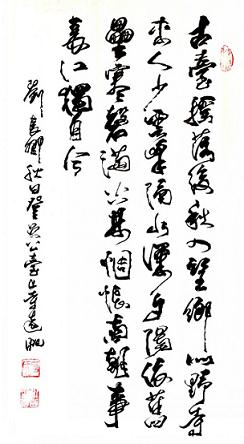 古臺摇落後秋入望鄉心野寺
来人少雲峰隔水深夕陽依舊
壘寒磬滿空林惆悵南朝事
長江獨自今
劉長卿秋日登吴公臺上寺遠眺